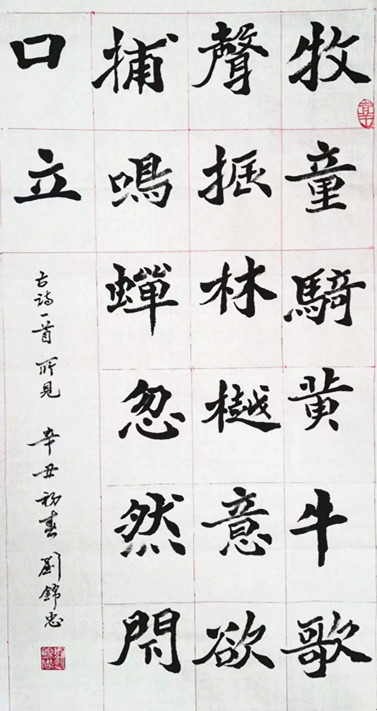 牧童騎黄牛歌
聲振林樾意欲
捕鳴蟬忽然閇
口立
古詩一首 所見 辛丑初春 劉錦忠